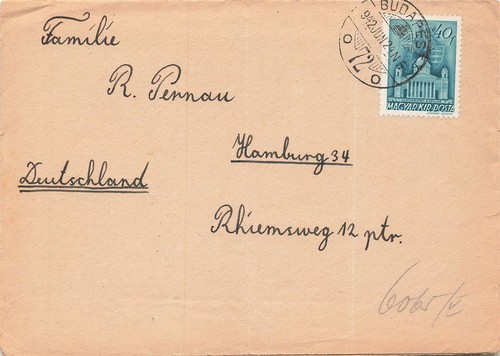 Familie
R. Pennau
Hamburg 34
Deutschland
Rhiemsweg 12 ptr.
BUDAPEST
72
40f
MAGYAR KIR. POSTA